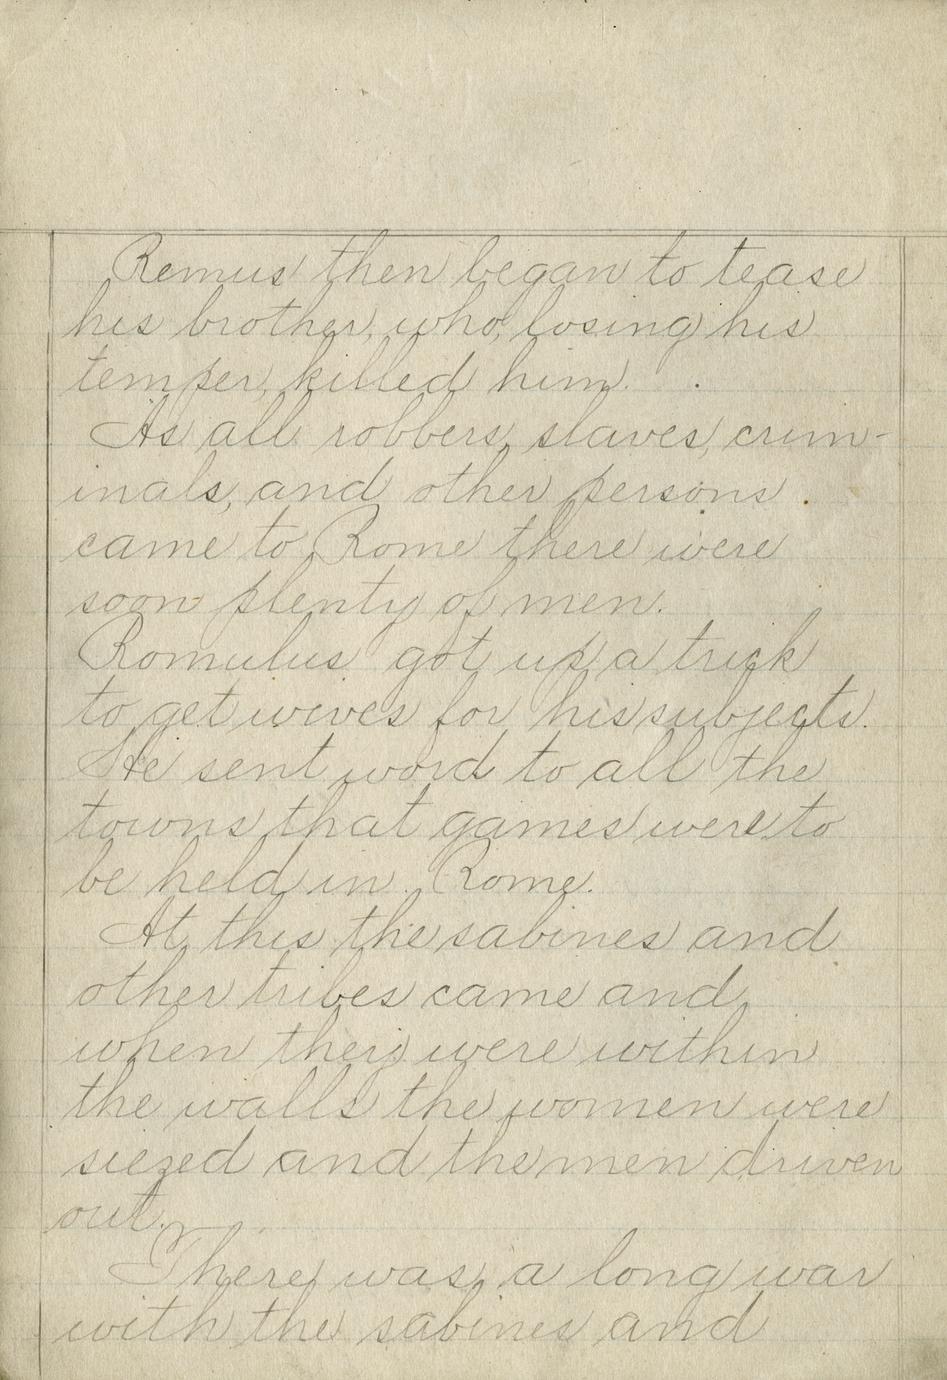 Remus then began to tease
his brother, who, losing his
temper, killed him.
As all robbers, slaves, crim-
inals, and other persons
came to Rome there were
soon plenty of men.
Romulus got up a trick
to get wives for his subjects.
He sent word to all the
towns that games were to
be held in Rome.
At this the sabines and
other tribes came and
when they were within
the walls the women were
siezed and the men driven
out.
There was a long war
with the sabines and